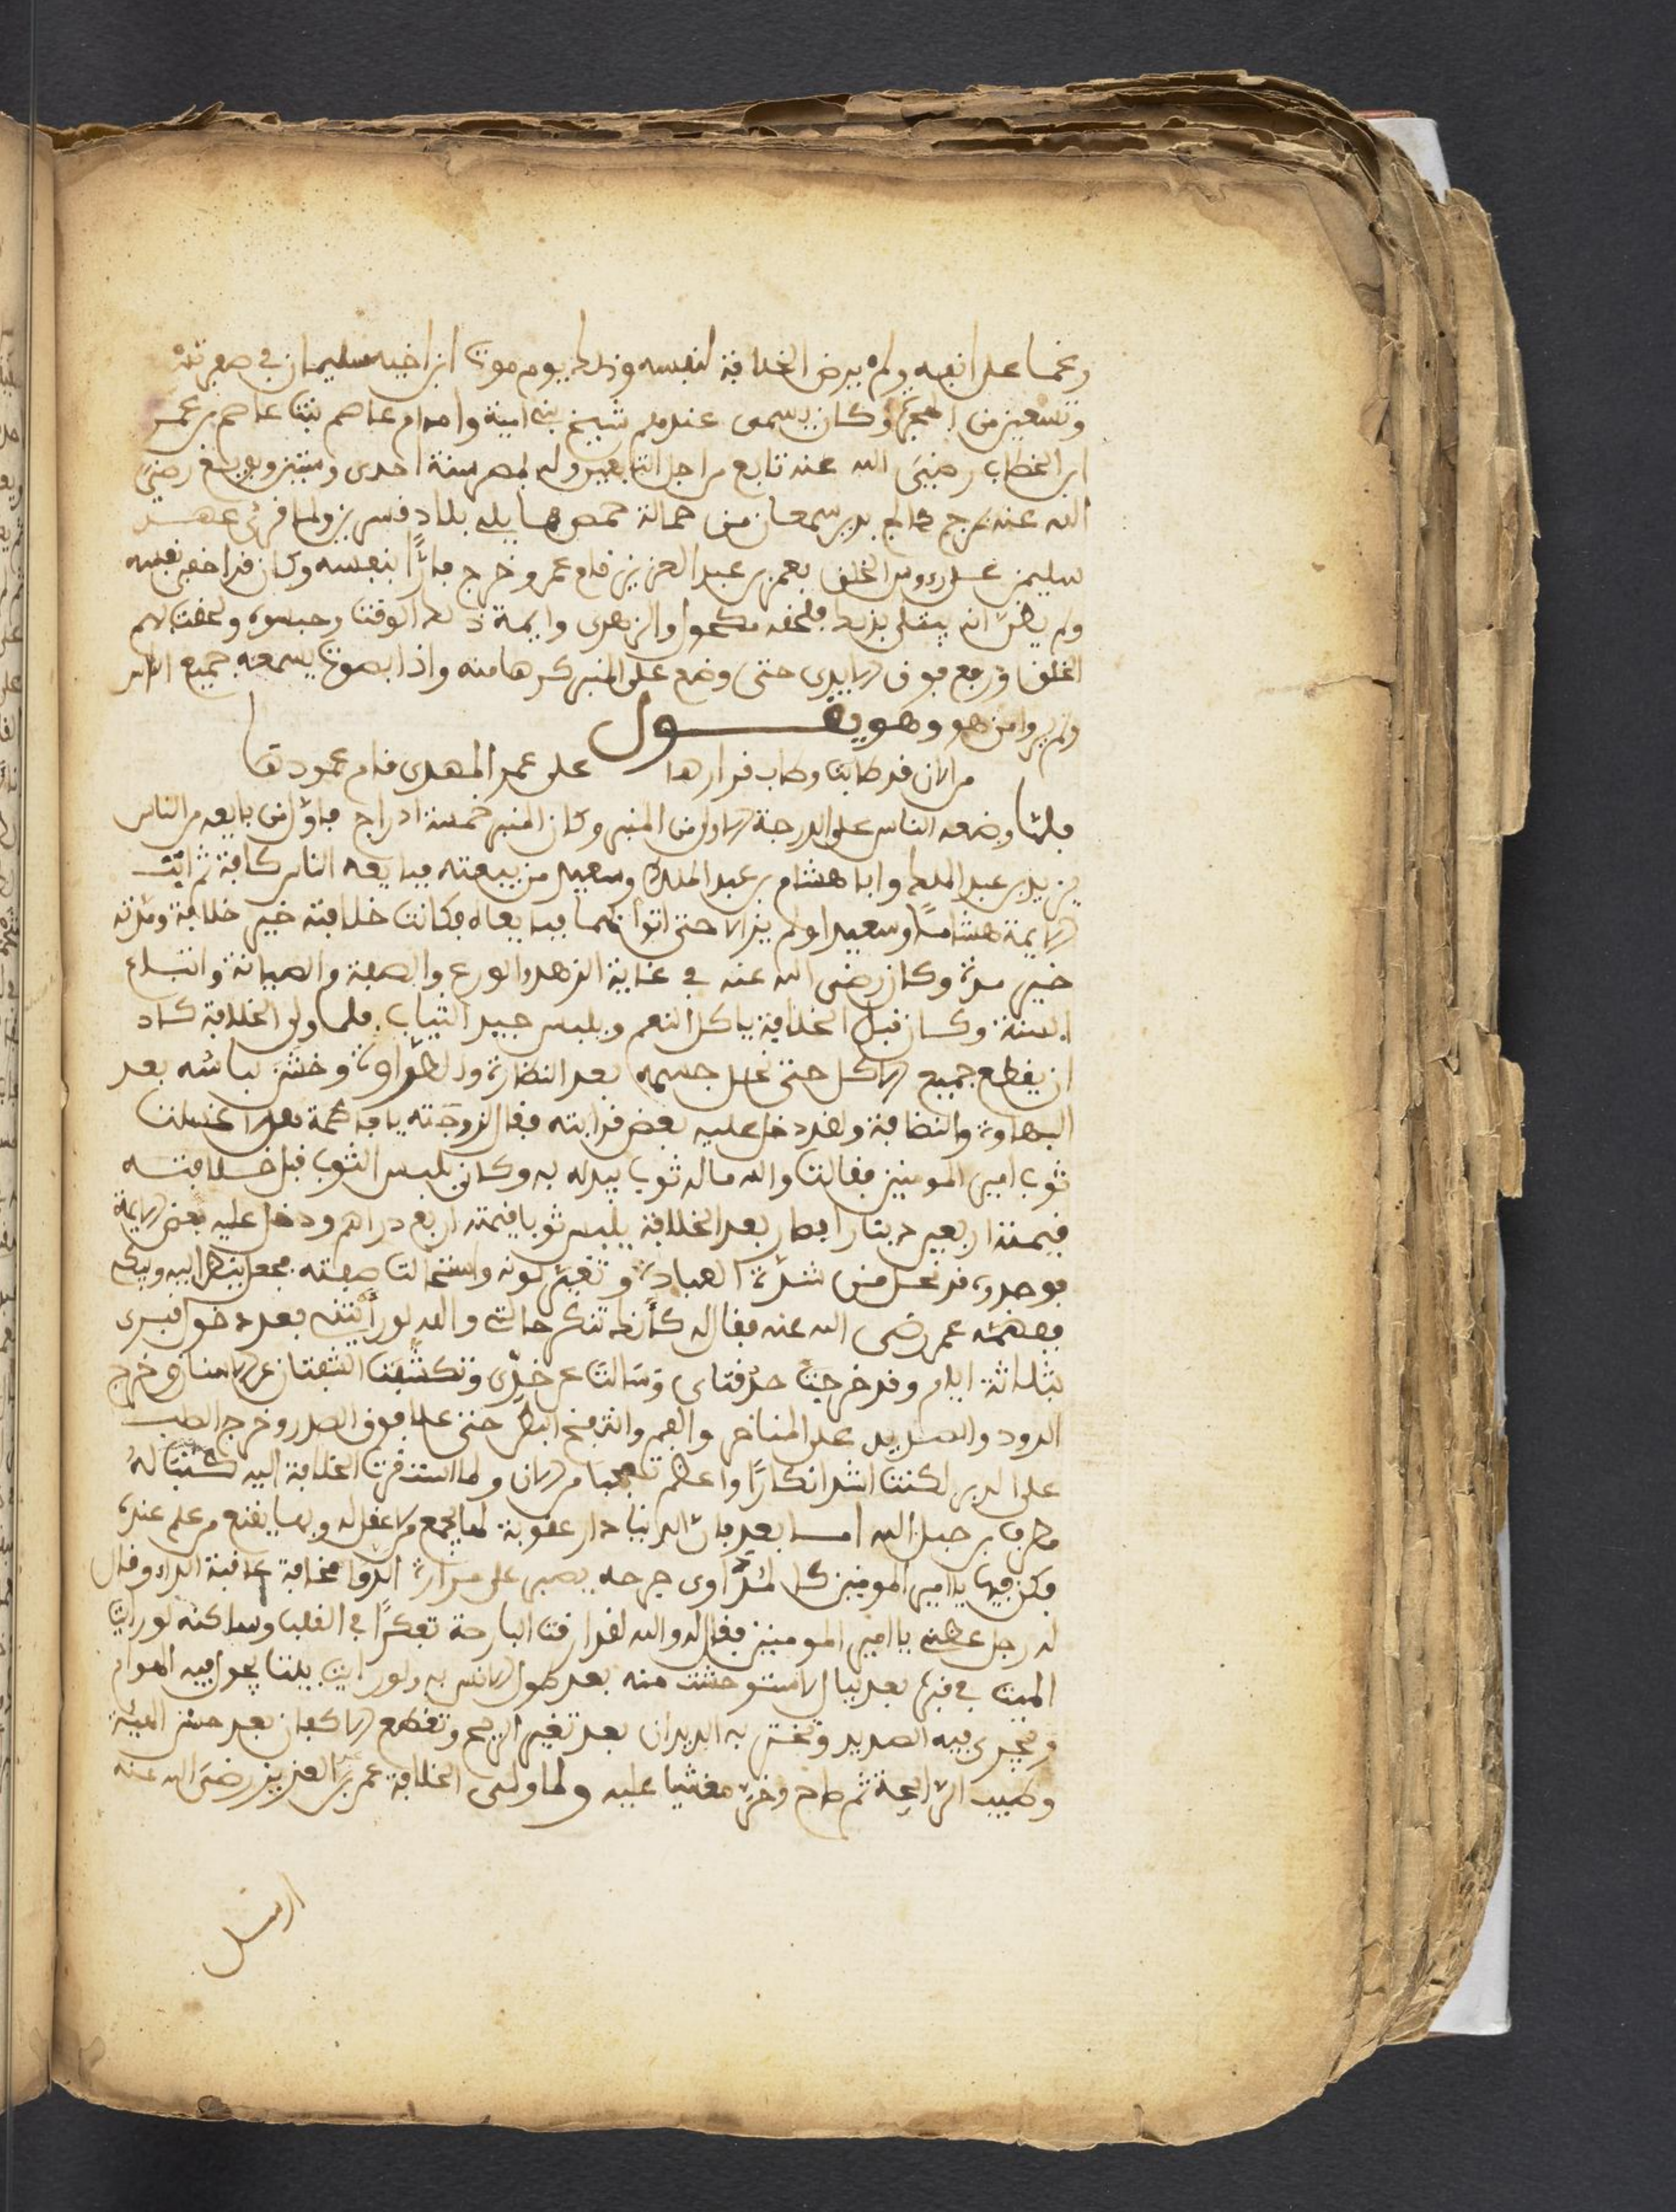 رغما على انفه ولم يرض الخلافة لنفسه وذلك يوم موت ابن اخيه سليمان في صفر تسعة
وتسعين من الهجرة وكان يسمى عندهم شيخ بني امية وامه ام عاصم بنت عاصم بن عمر
ابن الخطاب رضي الله عنه تابع من اجل التابعين ولد بمصر سنة احدى وستين وبويع رضي
الله عنه بدير سمعان من عمالة حمص مما يلي بلاد قنسرين ولما قرئ عهد
سليمن على رءوس الخلق بعمر بن عبد العزيز قام عمر وخرج فارًّا بنفسه وكان قد اخفى نفسه
ولم يظن انه يبتلى بذلك فلحقه مكحول والزهري وايمة ذلك الوقت وحبسوه ولحقت بهم
الخلق ورفع فوق الايدي حتى وضع على المنبر كرها منه واذا بصوت يسمعه جميع الناس
ولم يروا من هو وهو يقـــول
من الان قد طابت وطاب قرارها على عمر المهدي قام عمودها
فلما وضعه الناس على الدرجة الاولى من المنبر وكان المنبر خمسة ادراج فاول من بايعه من الناس
يزيد بن عبد الملك وابا هشام بن عبد الملك وسعيد من بيعته فبايعه الناس كافة ثم اتت
الايمة هشاما وسعيدا ولم يزالا حتى اتوا بهما فبايعاه فكانت خلافته خير خلافة ومدته
خير مدة وكان رضي الله عنه في غاية الزهد والورع والعفة والصيانة واتباع
السنة وكان قبل الخلافة ياكل النعم ويلبس جيد الثياب فلما ولي الخلافة كاد
ان يقطع جميع الاكل حتى نحل جسمه بعد النضارة والطراوة وخشن لباسه بعد
البهاوة والنظافة ولقد دخل عليه بعض قرابته فقال لزوجته يا فاطمة هلا غسلت
ثوب امير المومنين فقالت والله ما له ثوب يبدله به وكان يلبس الثوب قبل خلافته
قيمته اربعين دينارا فصار بعد الخلافة يلبس ثوبا قيمته اربع دراهم ودخل عليه بعض الايمة
فوجده قد نحل من شدة العبادة وتغير لونه واستحالت صفته فجعل ينظر اليه ويبكي
ففهمه عمر رضي الله عنه فقال له كأنك تنكر حالتي والله لو رأيتني بعد دخول قبري
بثلاثة ايام وقد خرجت حدقتاي وسالت على خدّي وتكشفت الشفتان عن الاسنان وخرج
الدود والصديد على المناخر والفم وانتفخ البطن حتى علا فوق الصدر وخرج الصلب
على الدبر لكنت اشد انكارًا واعظم تعجبا من الان ولما استقرت الخلافة اليه كتب له
مطرف بن عبد الله اما بعد فان الدنيا دار عقوبة لها يجمع من لا عقل له وبها يغتر من لا علم عنده
فكن فيها يا امير المومنين كالمداوي جرحه يصبر على مرارة الدوا مخافة عاقبة الداء وقال
له رجل عظني يا امير المومنين فقال له والله لقد ارقت البارحة تفكرًا في القلب وساكنه لو رايت
الميت في قبره بعد ليال لاستوحشت منه بعد طول الانس به ولو رايت بيتا يجول فيه الهوام
ويجري فيه الصديد وتخترقه الديدان بعد تغير الريح وتقطع الاكفان بعد حسن الهيئة
وطيب الرائحة ثم صاح وخر مغشيا عليه ولما ولي الخلافة عمر بن عبد العزيز رضي الله عنه
ارسل